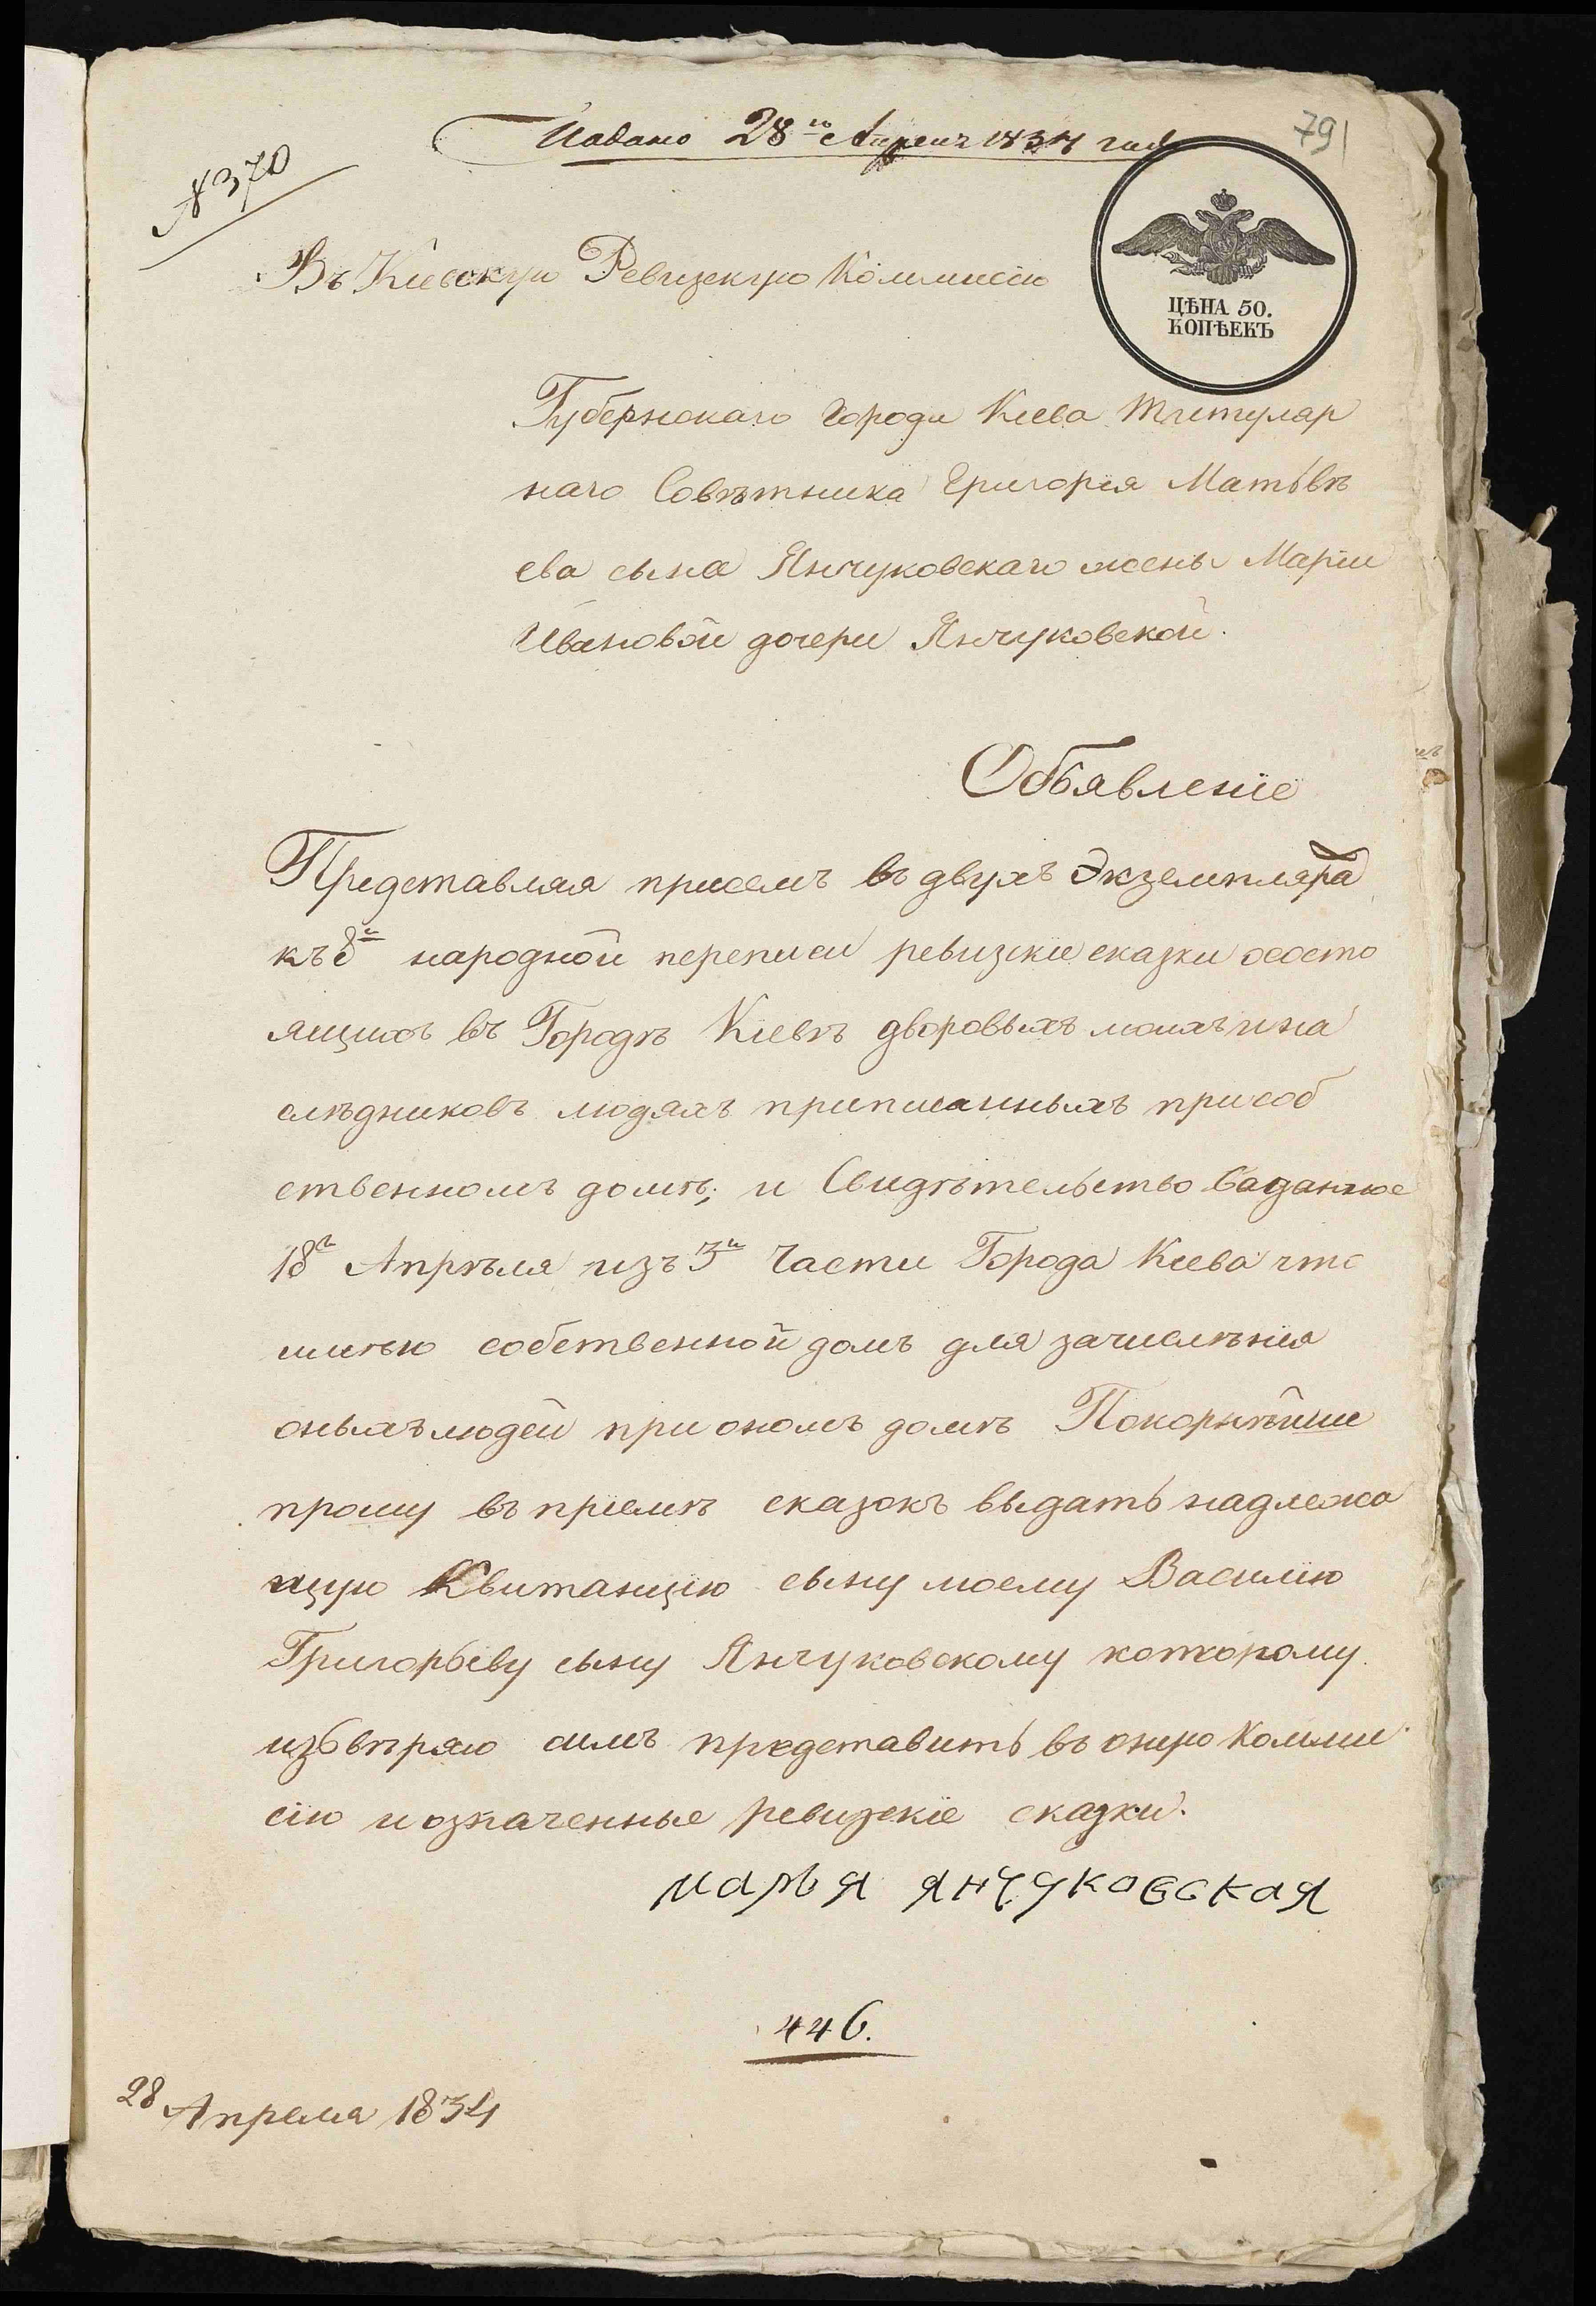 Подано 28го Апреля 1834 года
791
№ 370
Въ Киевскую Ревизскую Коммисію
ЦѢНА 50.
КОПѢЕКЪ
Губернскаго города Киева Титуляр
наго Совѣтника Григорія Матьвѣ
ева сына Янчуковскаго жены Маріи
Ивановой дочери Янчуковской.
Объявленіе
Представляя присемъ въ двухъ Экземпляра
къ 8й народной переписи ревизскіе сказки ососто
ящихъ въ Городѣ Киевѣ дворовыхъ моихъ и на
слѣдниковъ людяхъ приписанныхъ присоб
ственномъ домѣ; и Свидѣтельство Ваданное
18го Апрѣля изъ 3й Части Города Киева что
имѣю собственной домъ для зачислѣнія
оныхъ людей при ономъ домѣ Покорнѣйше
прошу въ пріемѣ сказокъ выдать надлежа
щую Квитанцію сыну моему Василію
Григорьеву сыну Янчуковскому которому
извѣряю симъ представить въ оную Комми
сію и означенные ревизскіе сказки.
марья янчуковская
446.
28 Апреля 1834